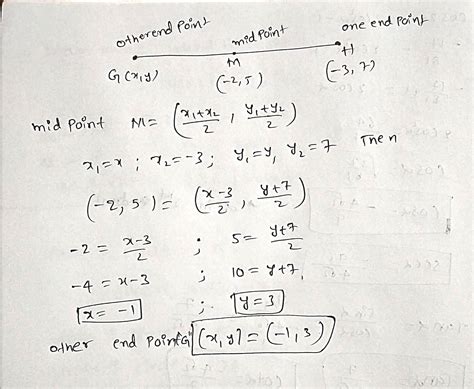 other end Point mid Point one end Point
G(x,y) M H
(-2,5) (-3,7)
mid Point M = (x₁+x₂/2 , y₁+y₂/2)
x₁=x ; x₂=-3; y₁=y, y₂=7 Then
(-2,5) = (x-3/2 , y+7/2)
-2 = x-3/2 ; 5 = y+7/2
-4 = x-3 ; 10 = y+7
x = -1 ; y = 3
other end Point G (x,y) = (-1,3)